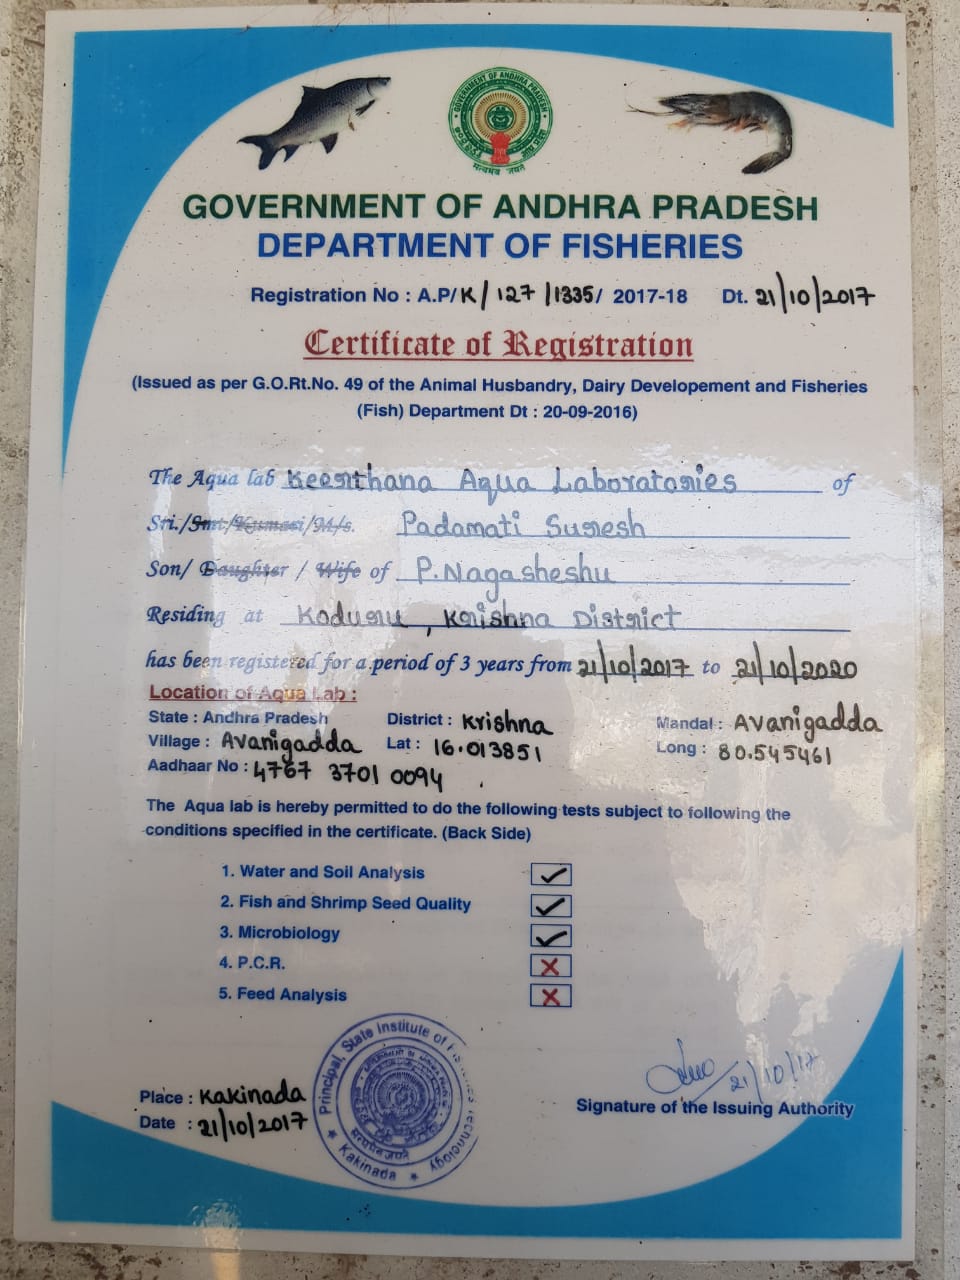 GOVERNMENT OF ANDHRA PRADESH
सत्यमेव जयते
GOVERNMENT OF ANDHRA PRADESH
DEPARTMENT OF FISHERIES
Registration No : A.P/K/127/1335/ 2017-18 Dt. 21/10/2017
Certificate of Registration
(Issued as per G.O.Rt.No. 49 of the Animal Husbandry, Dairy Developement and Fisheries
(Fish) Department Dt : 20-09-2016)
The Aqua lab Keerthana Aqua Laboratories of
Sri./Smt./Kumari/M/s. Padamati Suresh
Son/ Daughter / Wife of P.Nagasheshu
Residing at Koduru, Krishna District
has been registered for a period of 3 years from 21/10/2017 to 21/10/2020
Location of Aqua Lab :
State : Andhra Pradesh District : Krishna Mandal : Avanigadda
Village : Avanigadda Lat : 16.013851 Long : 80.545461
Aadhaar No : 4767 3701 0094
The Aqua lab is hereby permitted to do the following tests subject to following the
conditions specified in the certificate. (Back Side)
1. Water and Soil Analysis ✓
2. Fish and Shrimp Seed Quality ✓
3. Microbiology ✓
4. P.C.R. ✗
5. Feed Analysis ✗
Principal, State Institute of Fisheries Technology
★ Kakinada ★
सत्यमेव जयते
21/10/17
Signature of the Issuing Authority
Place : Kakinada
Date : 21/10/2017